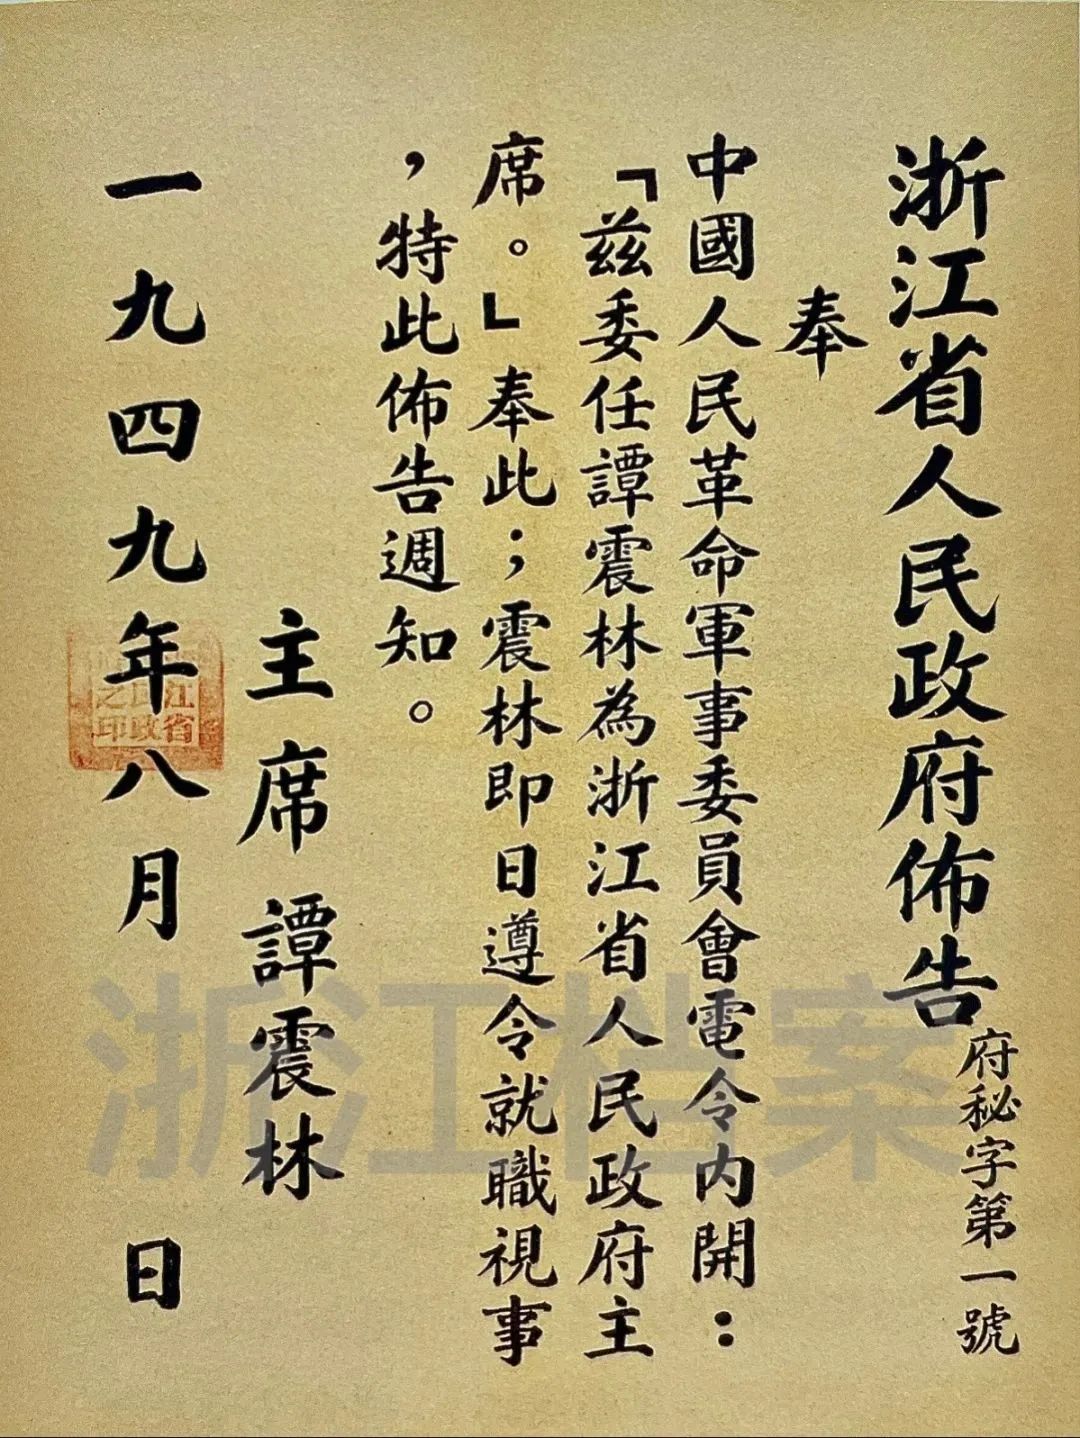 浙江省人民政府佈告
府秘字第一號
奉
中國人民革命軍事委員會電令內開：
「茲委任譚震林為浙江省人民政府主
席。」奉此；震林即日遵令就職視事
，特此佈告週知。
主席 譚震林
一九四九年八月 日
江省
民政
之印
浙江档案